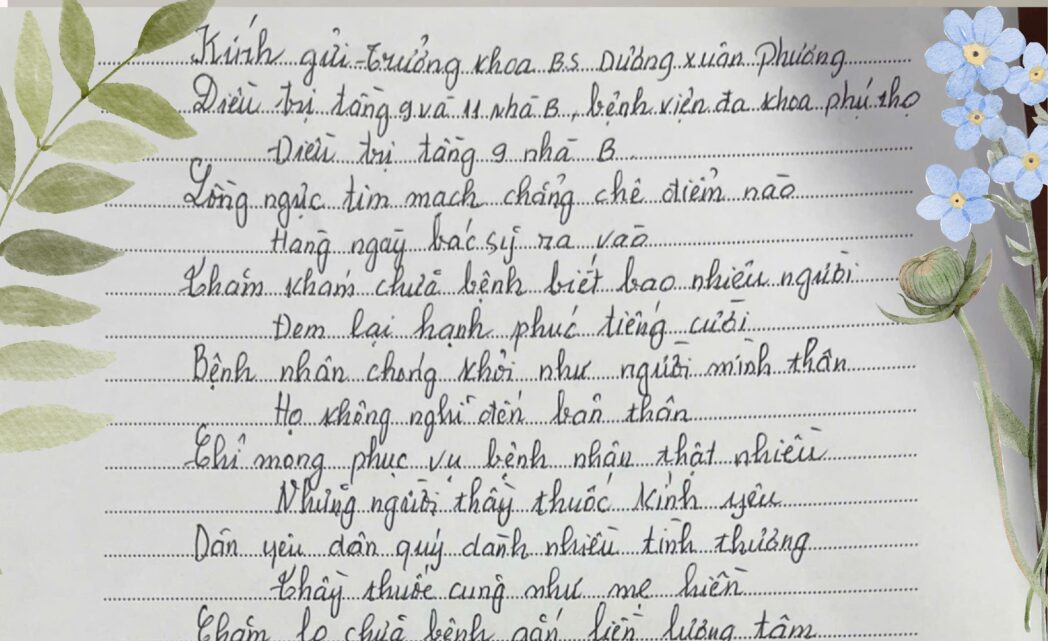 Kính gửi Trưởng khoa BS Dương Xuân Phương
Điều trị tầng 9 và 11 nhà B, bệnh viện đa khoa phú thọ
Điều trị tầng 9 nhà B
Lồng ngực tim mạch chẳng chê điểm nào
Hàng ngày bác sỹ ra vào
Thăm khám chữa bệnh biết bao nhiêu người
Đem lại hạnh phúc tiếng cười
Bệnh nhân chóng khỏi như người mình thân
Họ không nghĩ đến bản thân
Chỉ mong phục vụ bệnh nhân thật nhiều
Những người thầy thuốc kính yêu
Dân yêu dân quý dành nhiều tình thương
Thầy thuốc cũng như mẹ hiền
Chăm lo chữa bệnh gắn liền lương tâm